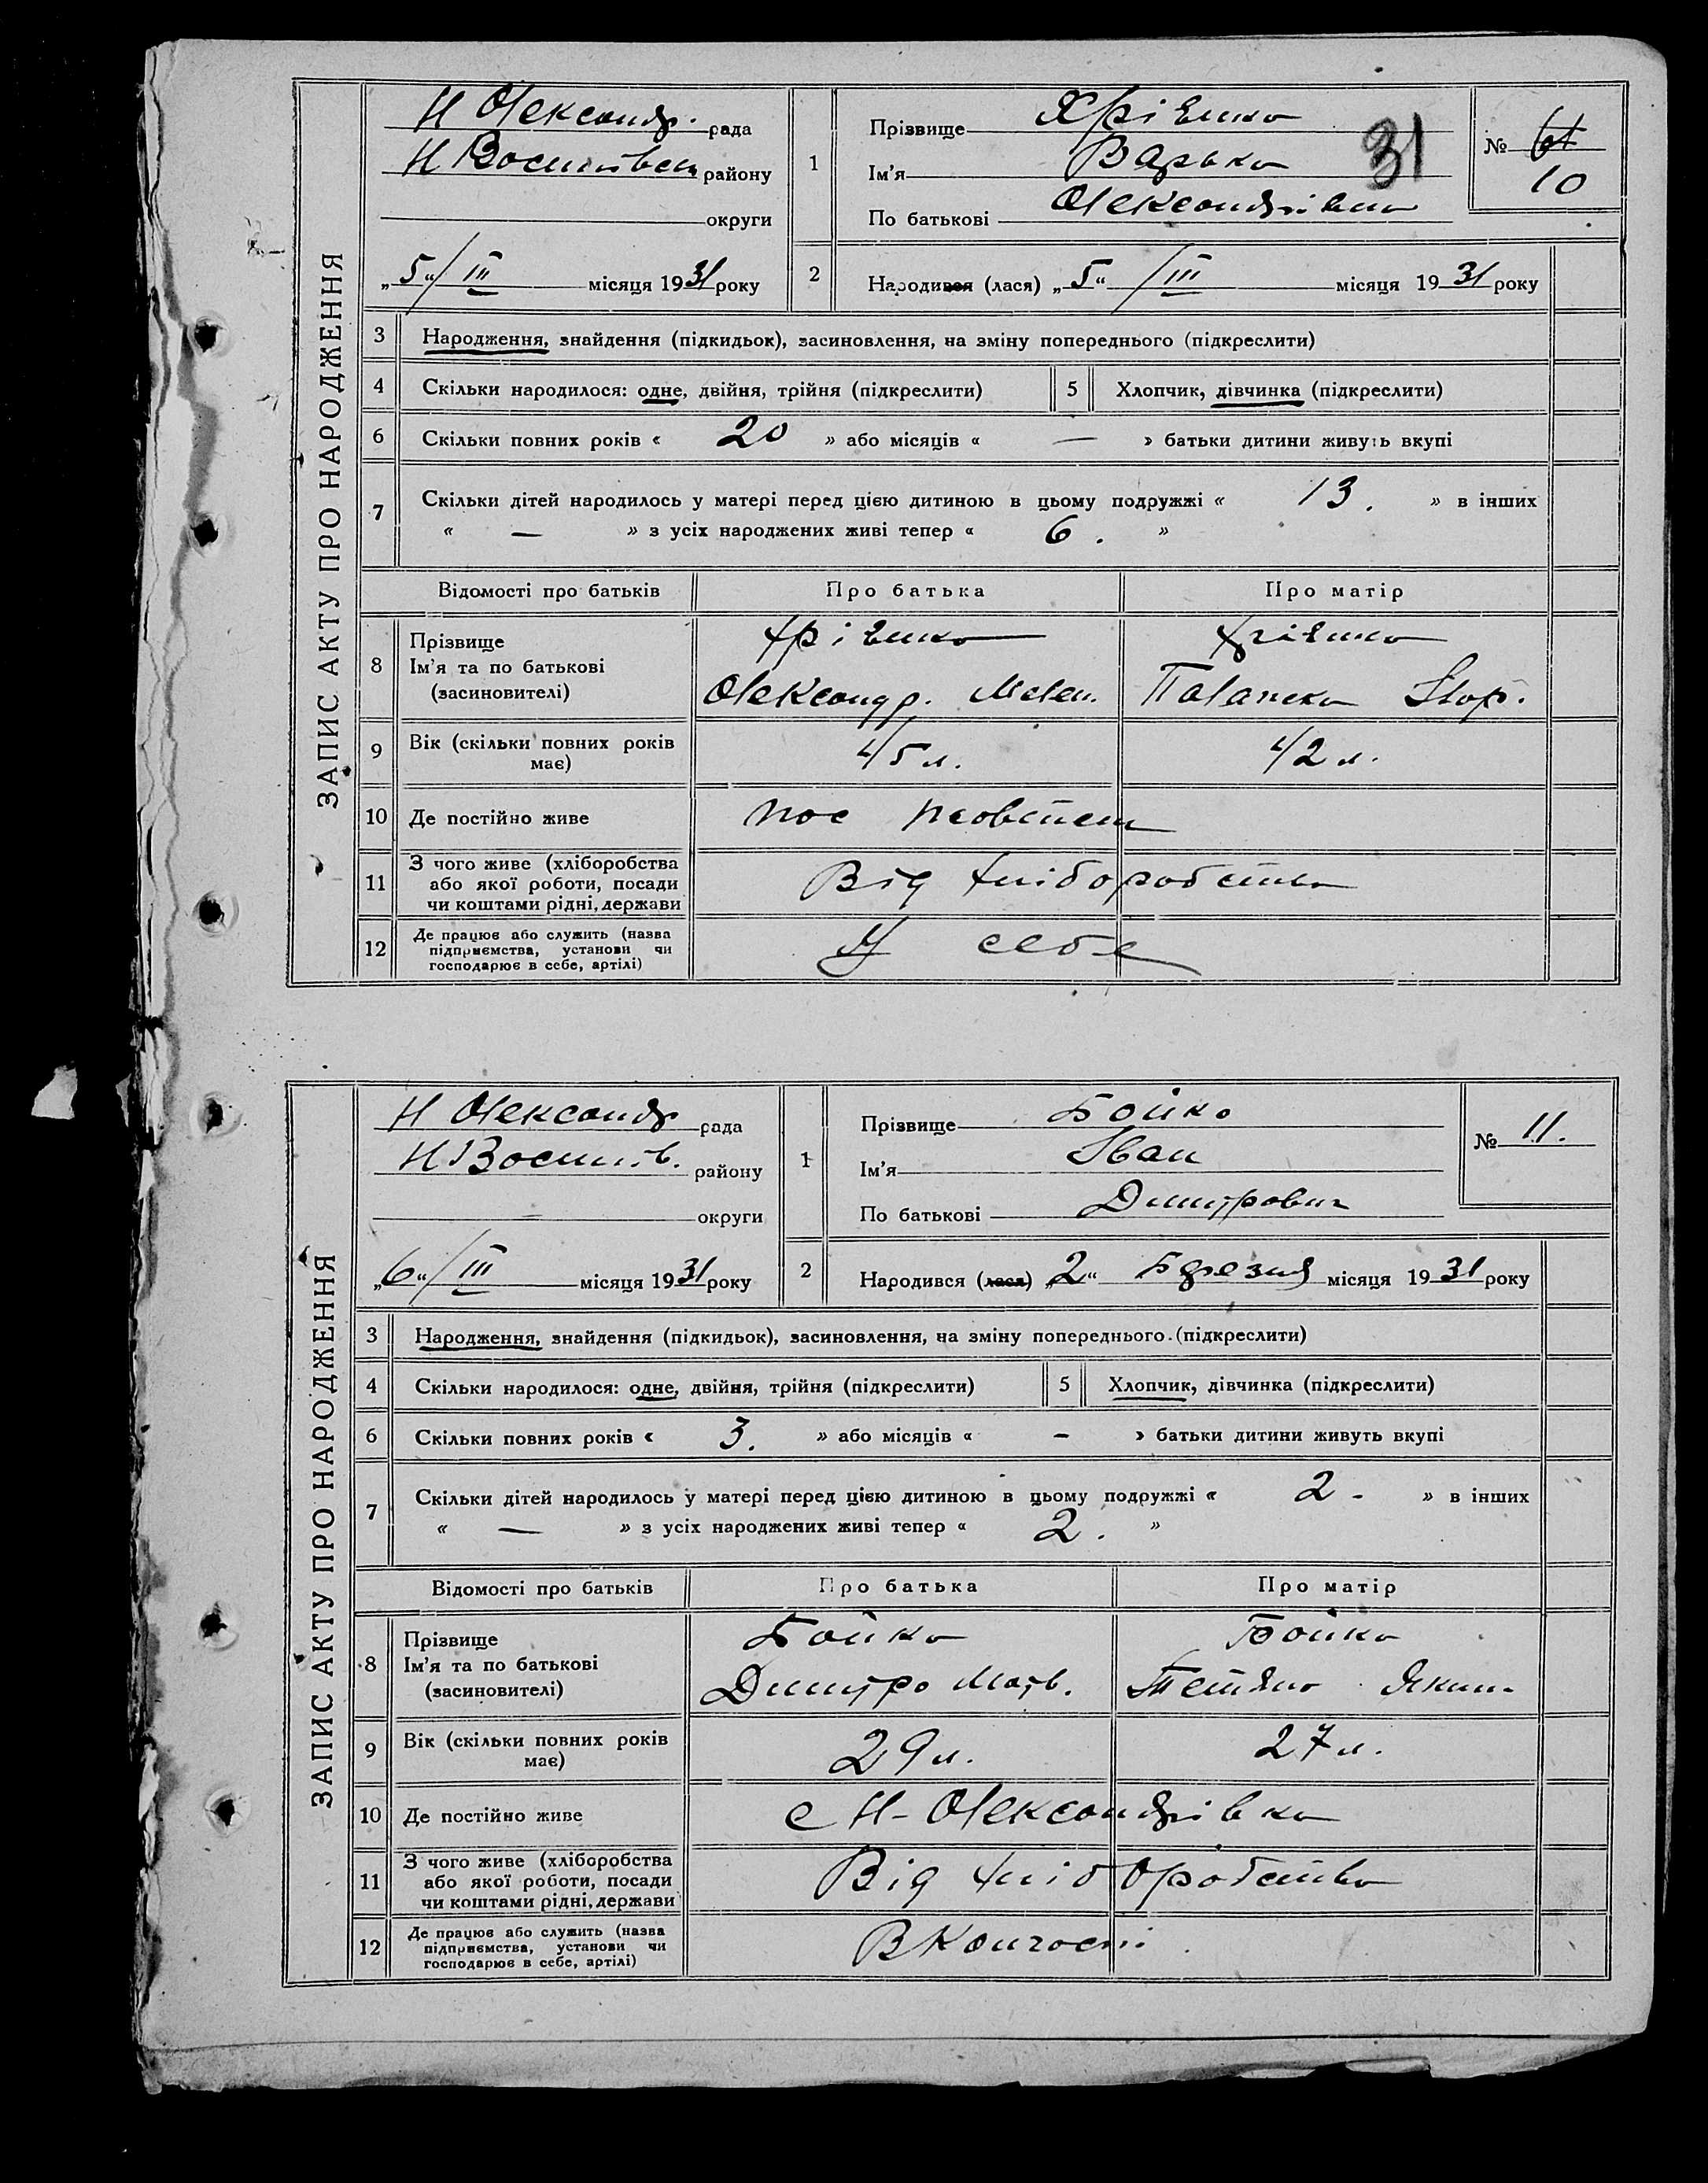 ЗАПИС АКТУ ПРО НАРОДЖЕННЯ
Н Олександр. рада
району
округи
„5“/III місяця 1931 року
1
Прізвище
Ім'я Варька
По батькові Олександрівна
31
№ 61
10
2
Народився (лася) „5“ /III місяця 1931 року
3 Народження, знайдення (підкидьок), засиновлення, на зміну попереднього (підкреслити)
4 Скільки народилося: одне, двійня, трійня (підкреслити)
5 Хлопчик, дівчинка (підкреслити)
6 Скільки повних років « 20 » або місяців « — » батьки дитини живуть вкупі
7 Скільки дітей народилось у матері перед цією дитиною в цьому подружжі « 13. » в інших
« — » з усіх народжених живі тепер « 6. »
Відомості про батьків Про батька Про матір
8 Прізвище
Ім'я та по батькові
(засиновителі)
Олександр.
9 Вік (скільки повних років має) 45 л. 42 л.
10 Де постійно живе
11 З чого живе (хліборобства
або якої роботи, посади
чи коштами рідні, держави
Від хліборобства
12 Де працює або служить (назва
підприємства, установи чи
господарює в себе, артілі)
У себе
ЗАПИС АКТУ ПРО НАРОДЖЕННЯ
Н Олександр рада
району
округи
„6“/III місяця 1931 року
1
Прізвище Бойко
Ім'я Іван
По батькові Дмитрович
№ 11.
2
Народився (лася) „2“ Березня місяця 1931 року
3 Народження, знайдення (підкидьок), засиновлення, на зміну попереднього (підкреслити)
4 Скільки народилося: одне, двійня, трійня (підкреслити)
5 Хлопчик, дівчинка (підкреслити)
6 Скільки повних років « 3. » або місяців « - » батьки дитини живуть вкупі
7 Скільки дітей народилось у матері перед цією дитиною в цьому подружжі « 2 - » в інших
« — » з усіх народжених живі тепер « 2. »
Відомості про батьків Про батька Про матір
8 Прізвище
Ім'я та по батькові
(засиновителі)
Бойко Бойко
Дмитро Матв. Тетяна Яким.
9 Вік (скільки повних років має) 29 л. 27 л.
10 Де постійно живе с Н-Олександрівка
11 З чого живе (хліборобства
або якої роботи, посади
чи коштами рідні, держави
Від хліборобства
12 Де працює або служить (назва
підприємства, установи чи
господарює в себе, артілі)